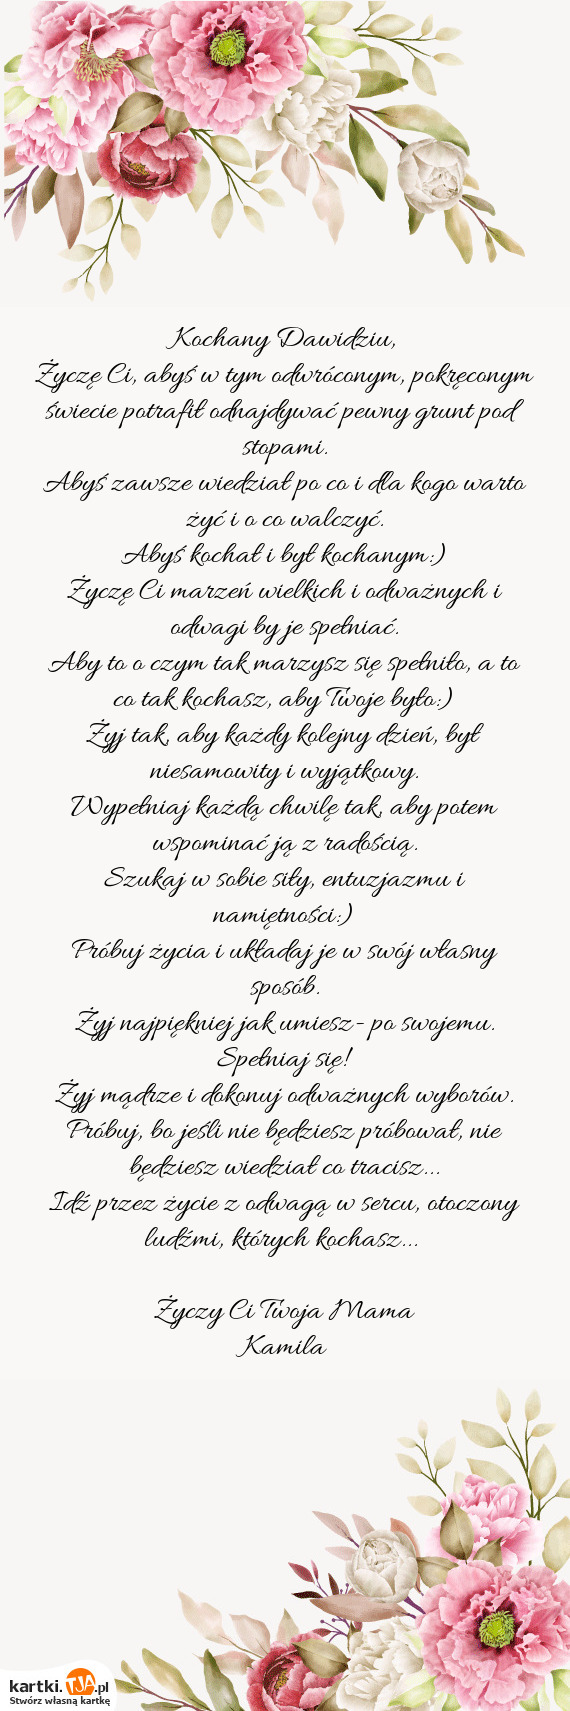 Kochany Dawidziu,
Życzę Ci, abyś w tym odwróconym, pokręconym
świecie potrafił odnajdywać pewny grunt pod
stopami.
Abyś zawsze wiedział po co i dla kogo warto
żyć i o co walczyć.
Abyś kochał i był kochanym:)
Życzę Ci marzeń wielkich i odważnych i
odwagi by je spełniać.
Aby to o czym tak marzysz się spełniło, a to
co tak kochasz, aby Twoje było:)
Żyj tak, aby każdy kolejny dzień, był
niesamowity i wyjątkowy.
Wypełniaj każdą chwilę tak, aby potem
wspominać ją z radością.
Szukaj w sobie siły, entuzjazmu i
namiętności:)
Próbuj życia i układaj je w swój własny
sposób.
Żyj najpiękniej jak umiesz- po swojemu.
Spełniaj się!
Żyj mądrze i dokonuj odważnych wyborów.
Próbuj, bo jeśli nie będziesz próbował, nie
będziesz wiedział co tracisz...
Idź przez życie z odwagą w sercu, otoczony
ludźmi, których kochasz...
Życzy Ci Twoja Mama
Kamila
kartki.TJA.pl
Stwórz własną kartkę